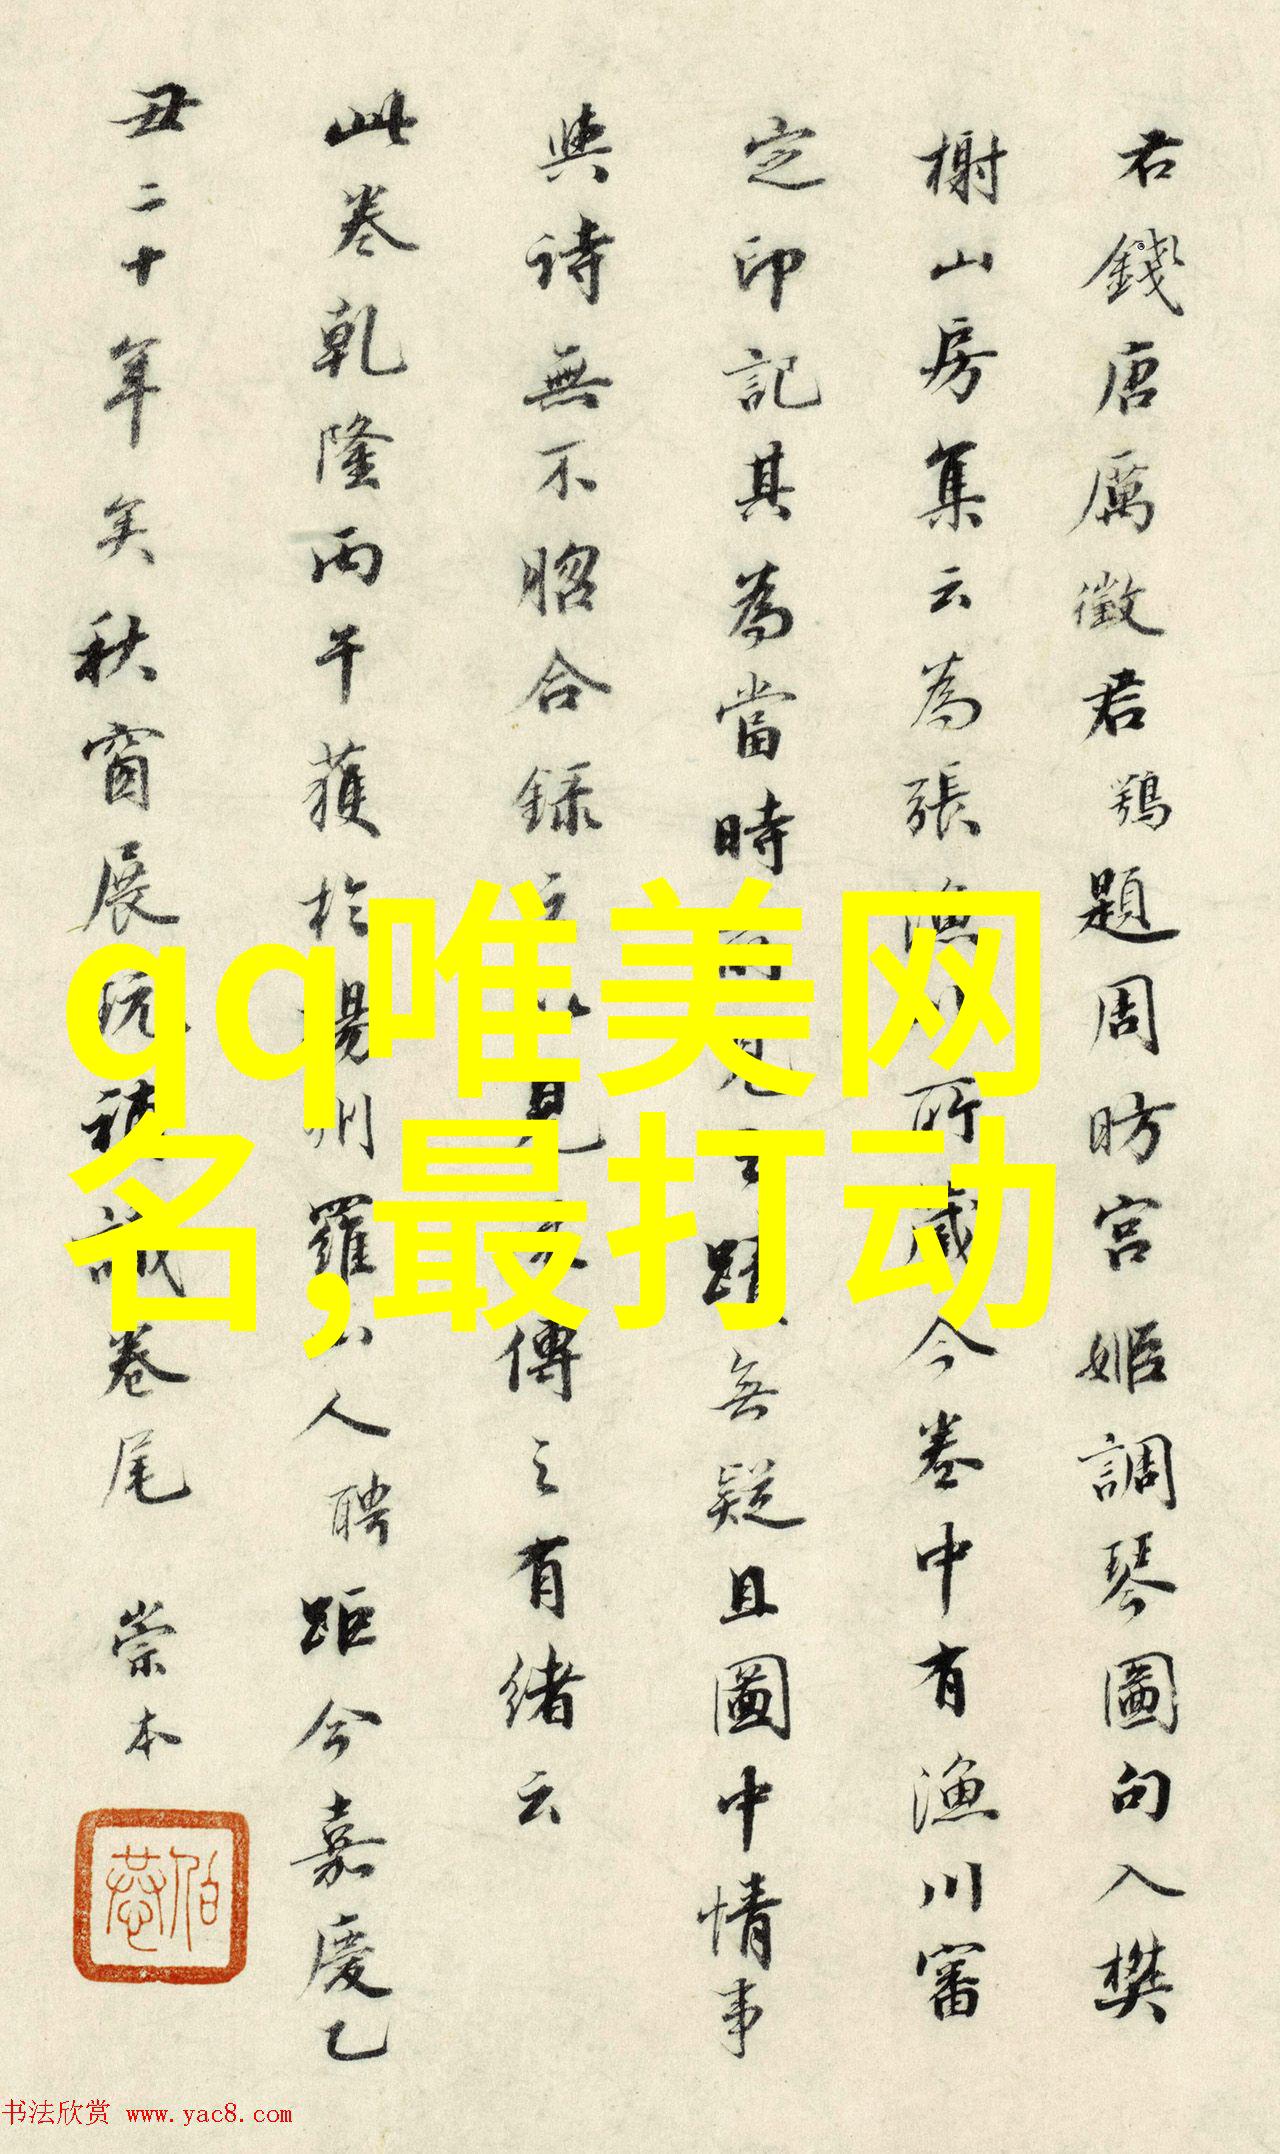 君錢唐厲徵君鶚題周昉宮姬調琴圖句入樊
榭山房集云為張漁川所藏今卷中有漁川審
定印記其為當時所見之蹟無疑且圖中情事
與詩無不昭合錄之以見其傳之有緒云
此卷乾隆丙午獲於揚州羅山人聘距今嘉慶乙
丑二十年矣秋窗展玩神識卷尾 崇本
qq唯美网
名,最打动
书法欣赏 www.yac8.com